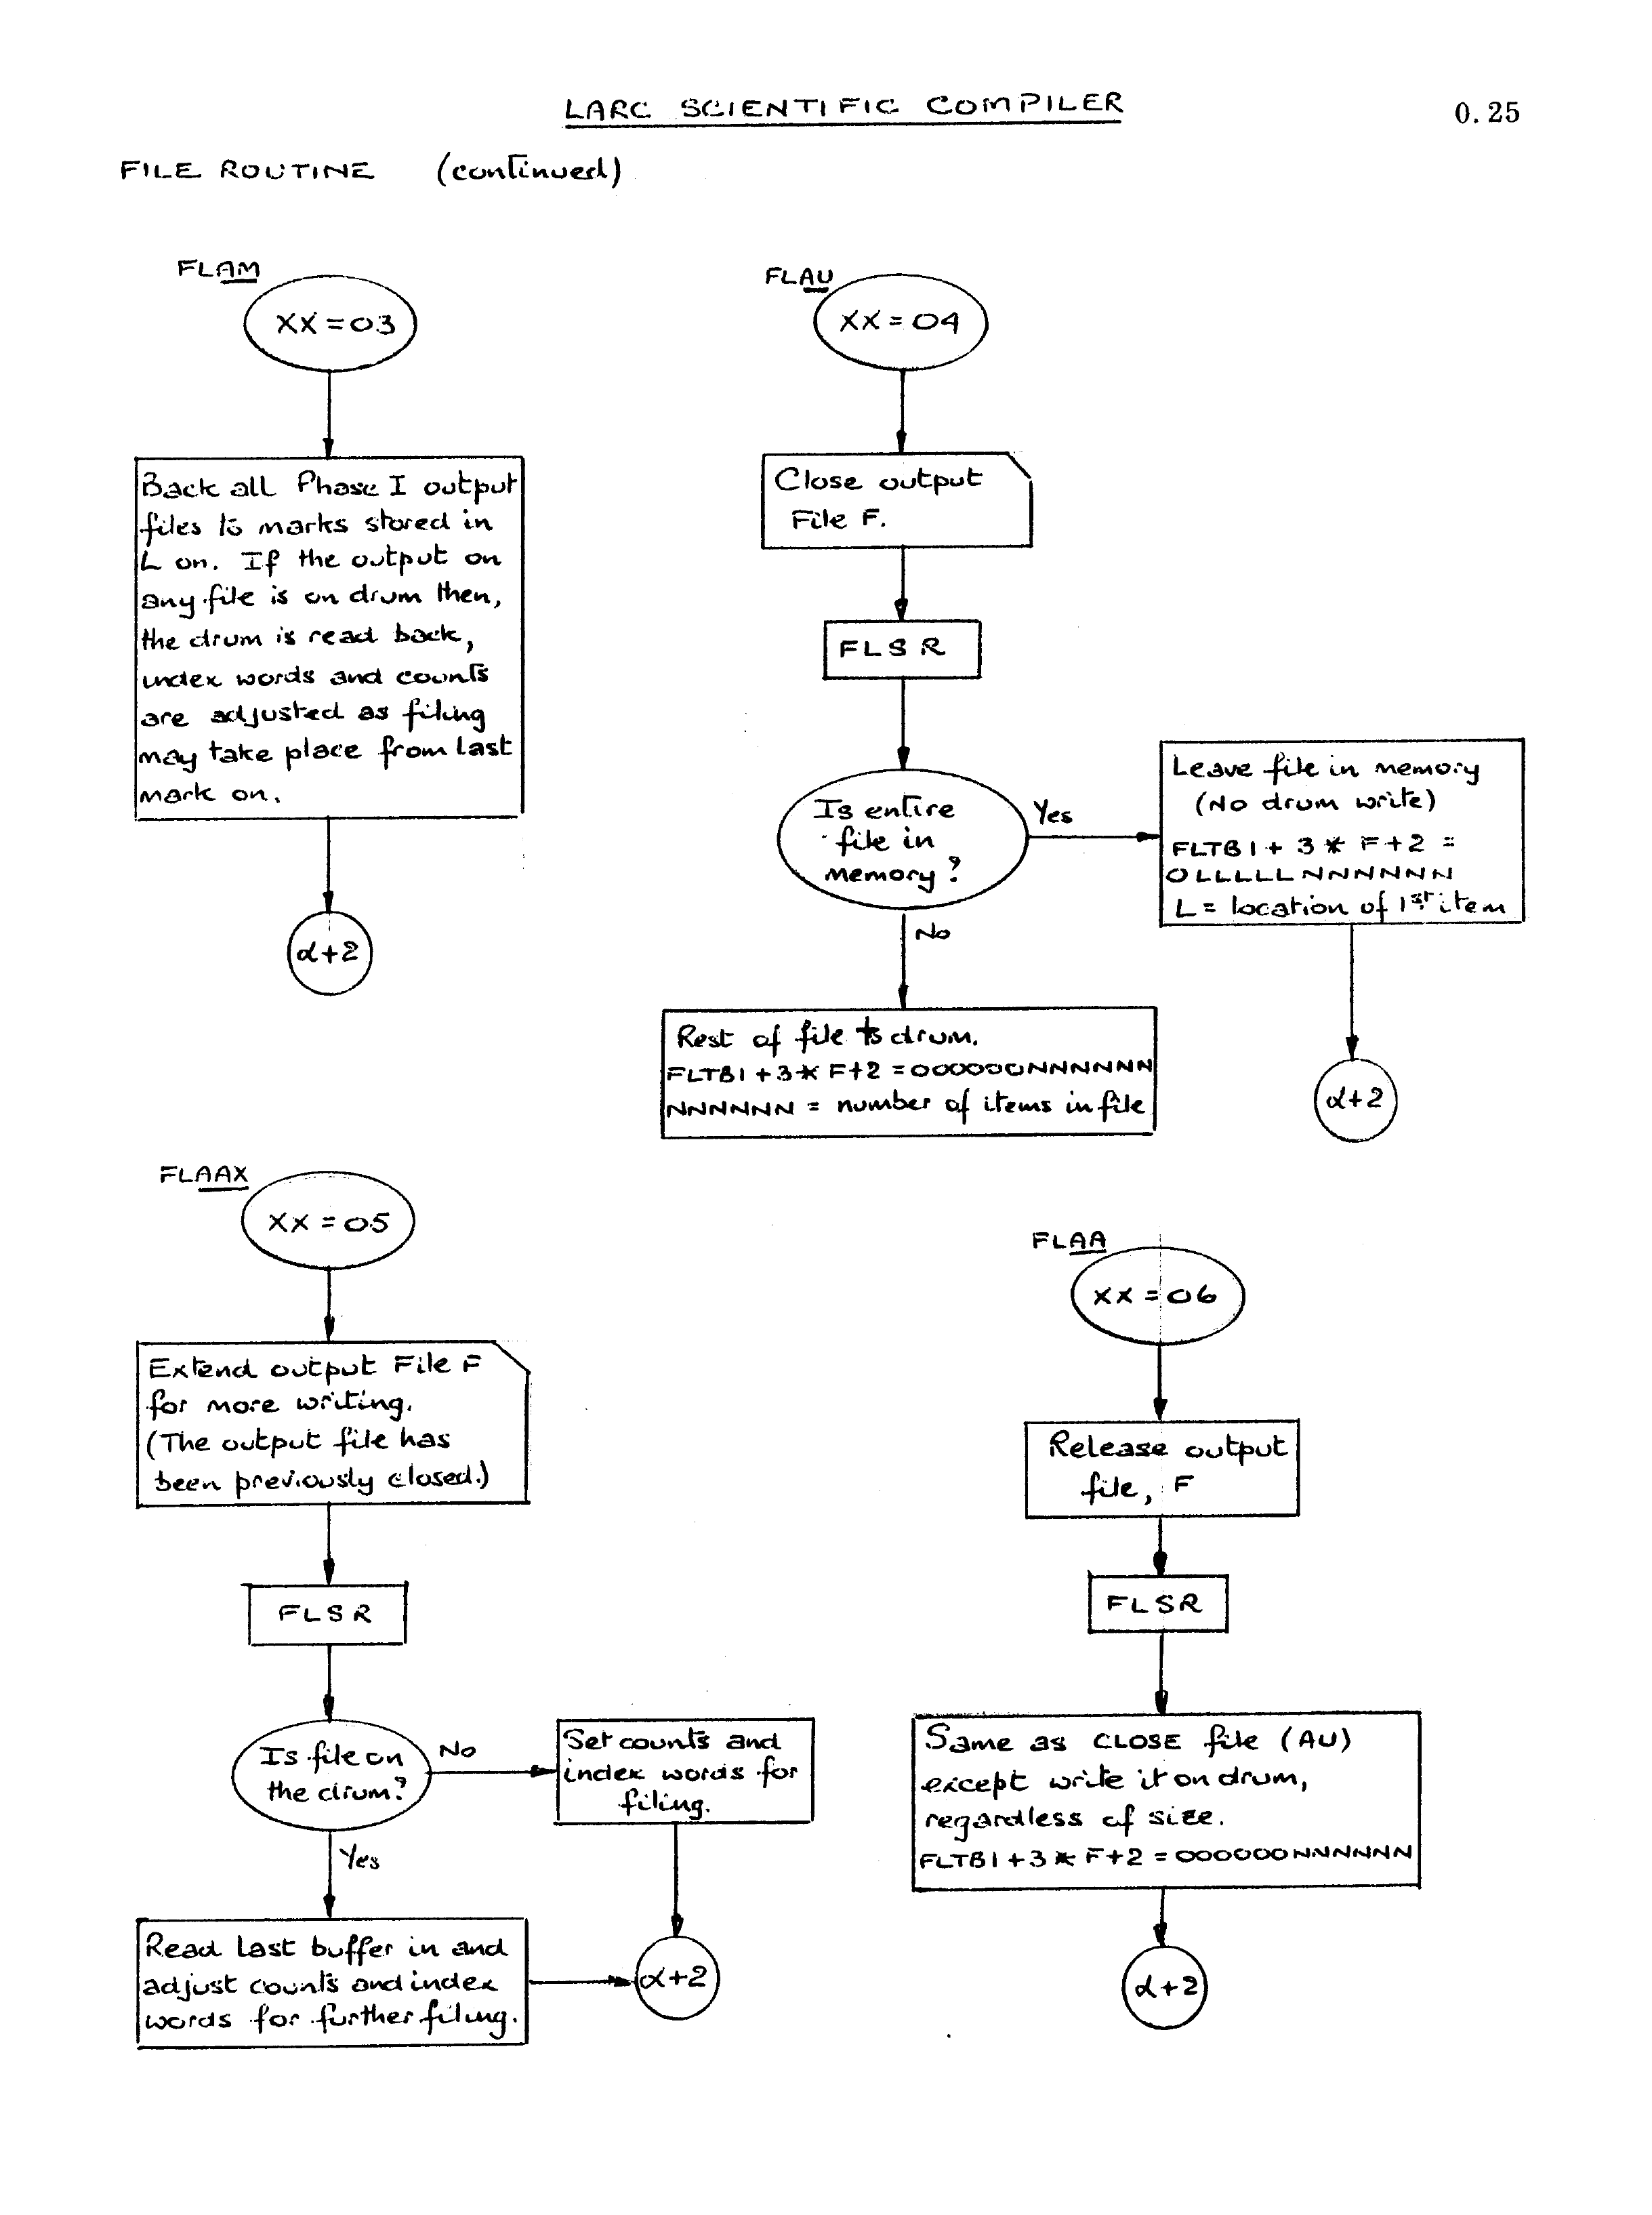 LARC SCIENTIFIC COMPILER
0.25
FILE ROUTINE (continued)
FLAM
XX = 03
Back all Phase I output
files to marks stored in
L on. If the output on
any file is on drum then,
the drum is read back,
index words and counts
are adjusted as filing
may take place from last
mark on.
α+2
FLAU
XX = 04
Close output
File F.
FLSR
Is entire
file in
memory?
Yes
Leave file in memory
(No drum write)
FLTB1 + 3 * F+2 =
0LLLLLNNNNNN
L = location of 1st item
α+2
No
Rest of file to drum.
FLTB1 + 3* F+2 = 000000NNNNNN
NNNNNN = number of items in file
FLAAX
XX = 05
Extend output File F
for more writing.
(The output file has
been previously closed.)
FLSR
Is file on
the drum?
No
Set counts and
index words for
filing.
Yes
Read last buffer in and
adjust counts and index
words for further filing.
α+2
FLAA
XX = 06
Release output
file, F
FLSR
Same as CLOSE file (AU)
except write it on drum,
regardless of size.
FLTB1 + 3 * F+2 = 000000NNNNNN
α+2